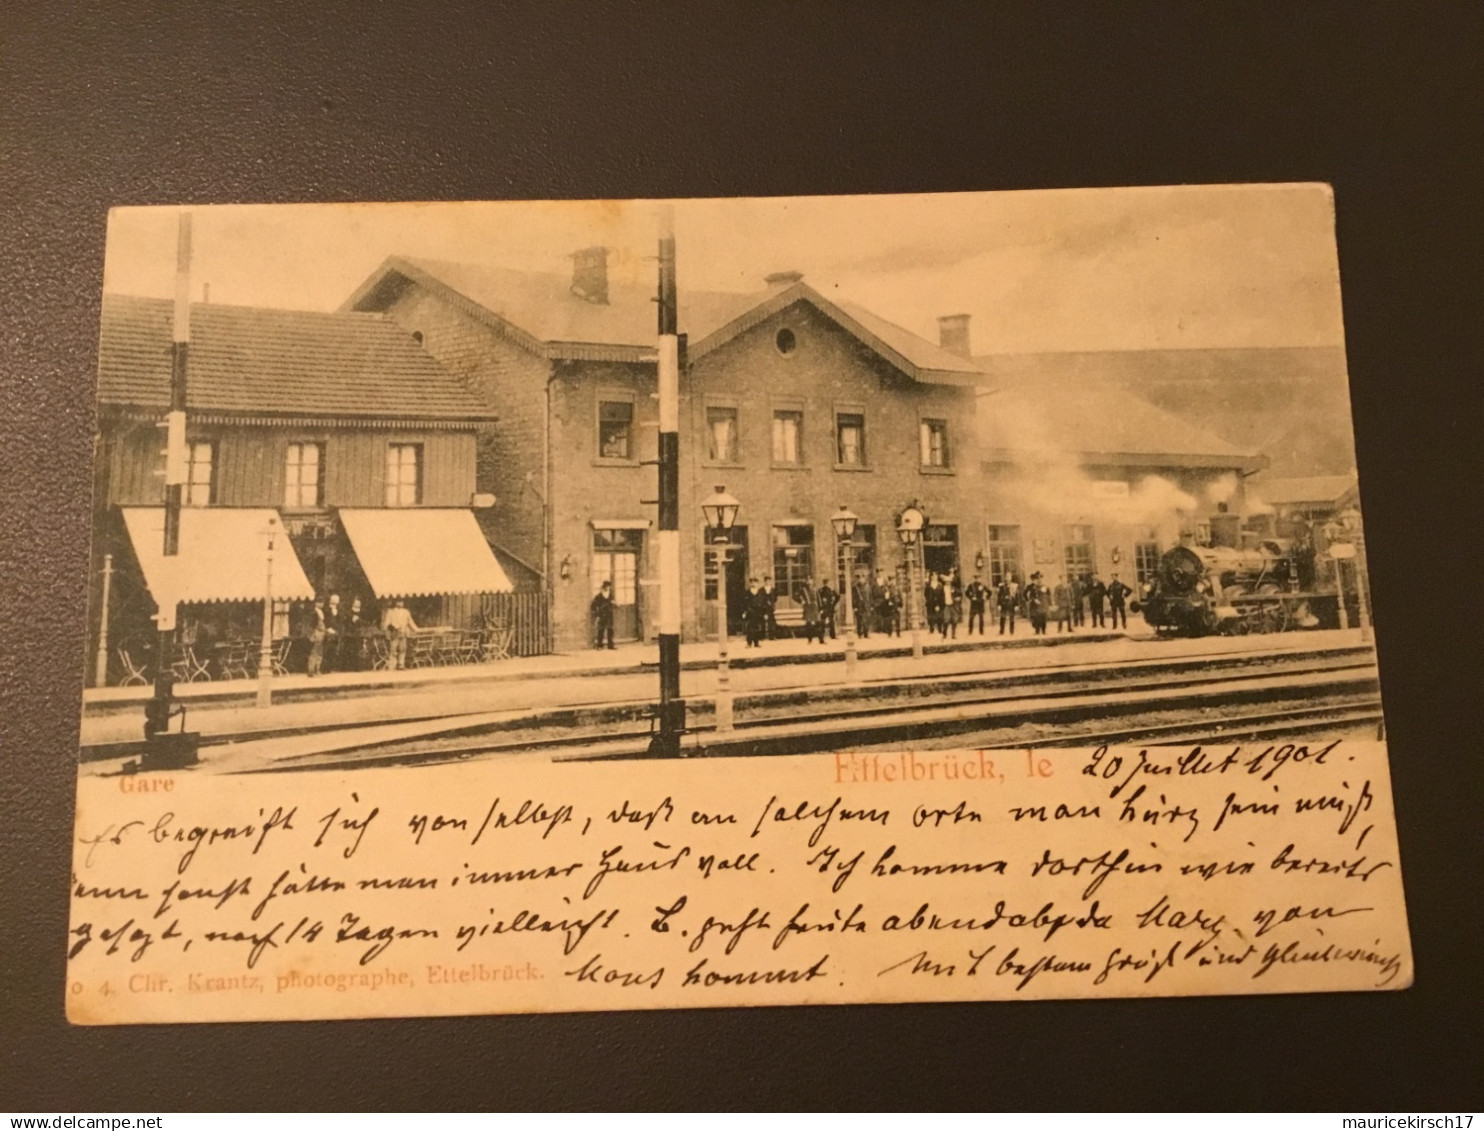 Gare
Ettelbrück, le 20 Juillet 1901.
Es begreift sich von selbst, daß an solchem orte man kurz sein muß,
denn sonst hätte man immer Haus voll. Ich komme dorthin wie bereits
gesagt, nach 14 Tagen vielleicht. B. geht heute abend ab, da Marg. von
Mons kommt. Mit bestem Gruß und Glückwunsch
o 4. Chr. Krantz, photographe, Ettelbrück.
delcampe.net
mauricekirsch17